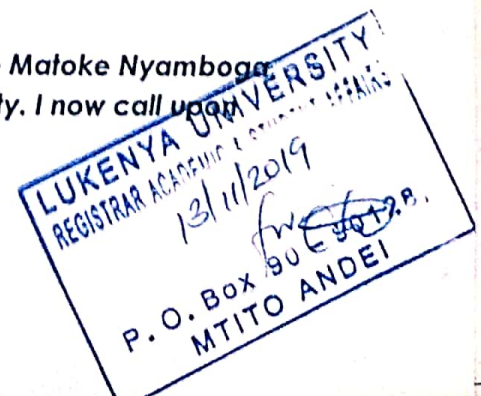 Matoke Nyamboga
ty. I now call upon
LUKENYA UNIVERSITY
REGISTRAR ACADEMIC & STUDENT AFFAIRS
13/11/2019
P. O. BOX 90
MTITO ANDEI